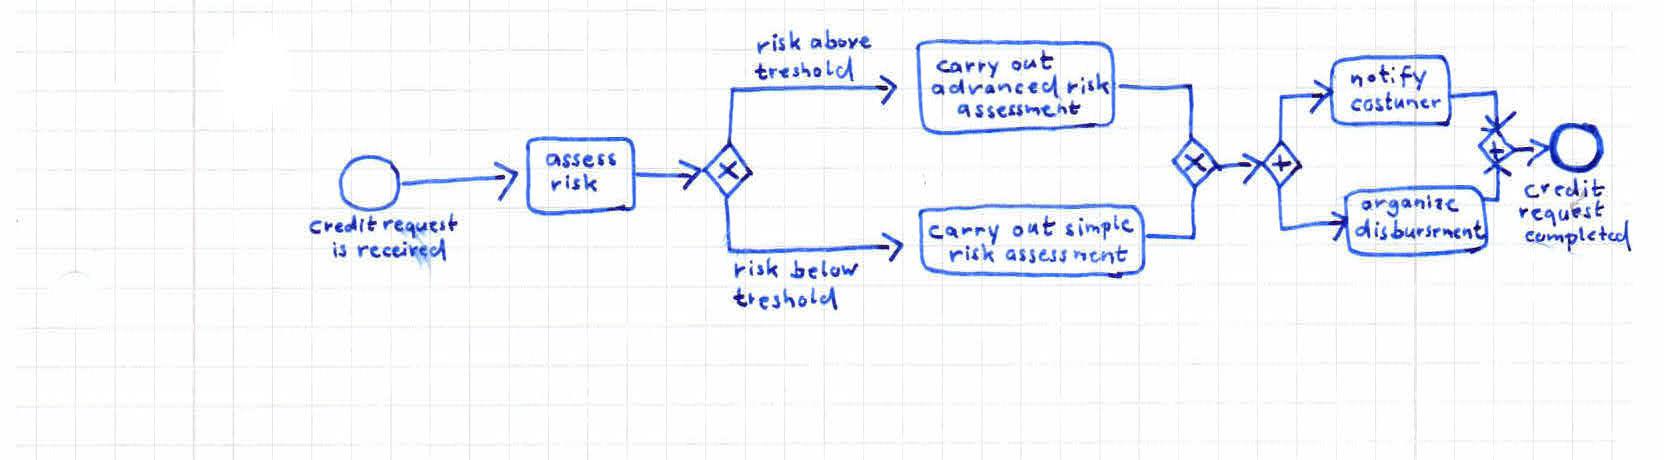 credit request
is received
assess
risk
risk above
treshold
risk below
treshold
carry out
advanced risk
assessment
carry out simple
risk assessment
notify
costumer
organize
disbursement
credit
request
completed